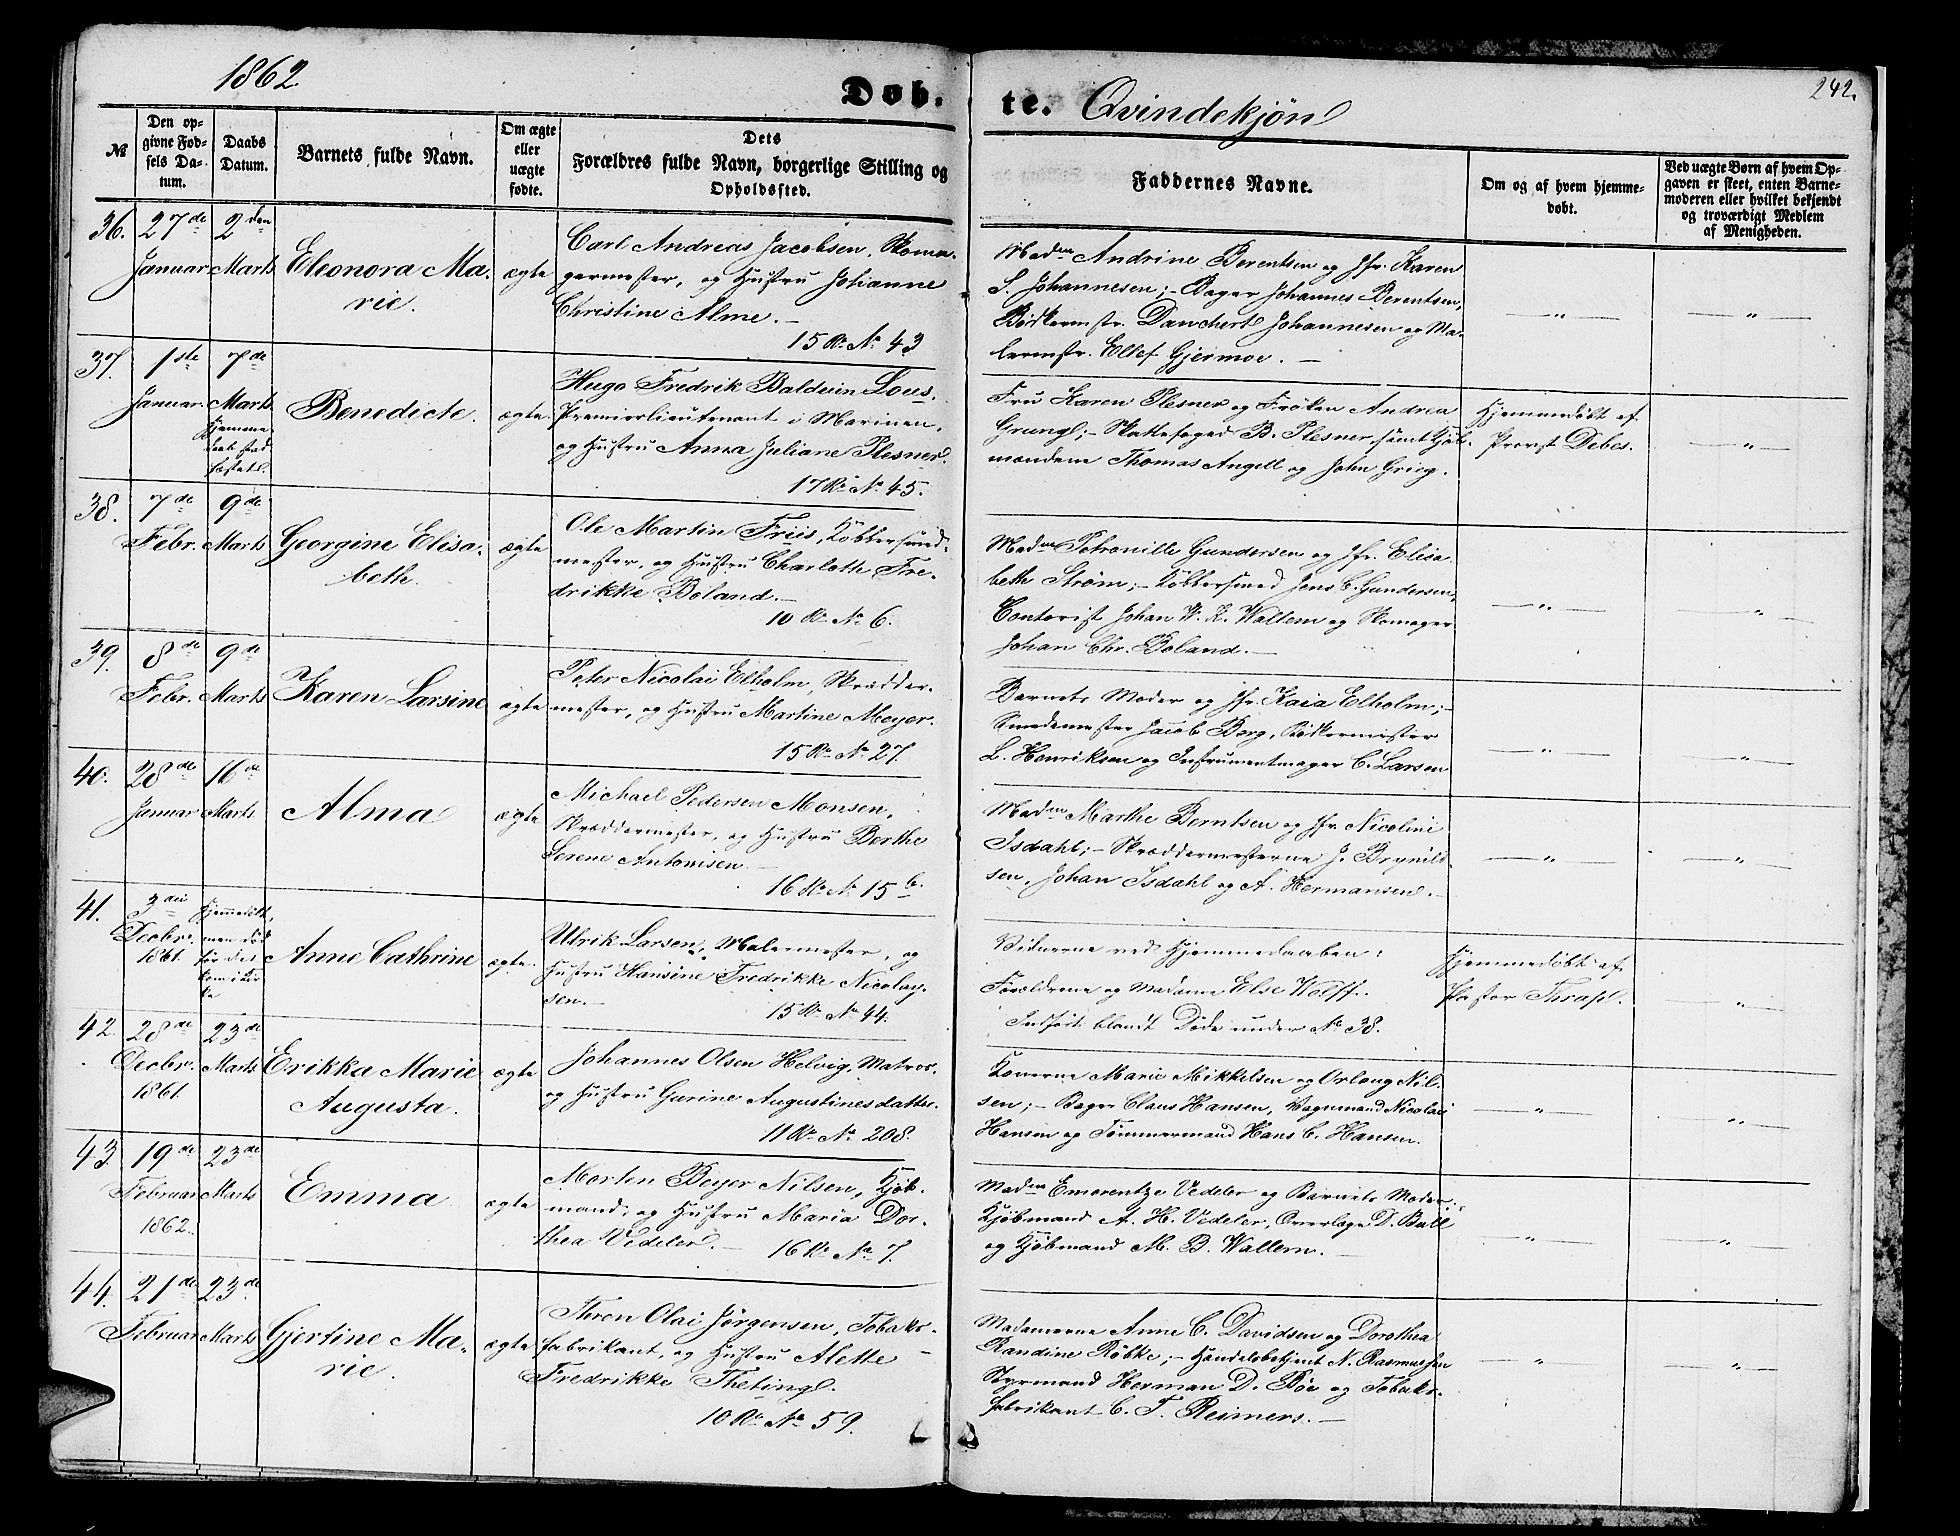 1862.
Døb.
te.
Qvindekjøn
242.
№
Den op-
givne Fød-
sels Da-
tum.
Daabs
Datum.
Barnets fulde Navn.
Om ægte
eller
uægte
fødte.
Dets
Forældres fulde Navn, borgerlige Stilling og
Opholdssted.
Faddernes Navne.
Om og af hvem hjemme-
døbt.
Ved uægte Børn af hvem Op-
gaven er skeet, enten Barne-
moderen eller hvilket bekjendt
og troværdigt Medlem
af Menigheden.
36.
27de
Januar
2den
Marts
Eleonora Ma-
rie.
ægte
Carl Andreas Jacobsen, Skoma-
germester, og Hustru Johanne
Christine Alme. —
15 Rd. No. 43
Madm Andrine Berentsen og Jfr. Karen
S. Johannesen; - Bager Johannes Berentsen,
Bødkermstr. Danchert Johannesen og Ma-
lermstr. Ellef Gjermoe. —
— " —
— " —
37.
1ste
Januar.
7de
Marts
Hjemme-
daab stad-
fæstet.
Benedicte.
ægte.
Hugo Fredrik Balduin Lous.
Premierlieutenant i Marinen,
og Hustru Anna Juliane Plesner.
17 Rd. No. 45.
Fru Karen Plesner og Frøken Andrea
Grung; - Skattefoged B. Plesner, samt Kjøb-
mændene Thomas Angell og John Grieg.
Hjemmedøbt af
Provst Debes.
— " —
38.
7de
Febr.
9de
Marts
Georgine Elisa-
beth.
ægte
Ole Martin Friis, Kobbersmed-
mester, og Hustru Charloth Fre-
drikke Boland. —
10 Rd. No. 6.
Madm Petronille Gundersen og Jfr. Elisa-
beth Strøm; - Kobbersmed Jens C. Gundersen,
Contorist Johan W. K. Wallem og Skomager
Johan Chr. Boland. —
— " —
"
39.
8de
Febr.
9de
Marts
Karen Larsine
ægte
Peter Nicolai Elholm, Skrædder-
mester, og Hustru Martine Meyer.
15 Rd. No. 27.
Barnets Moder og Jfr. Kaia Elholm; -
Smedemester Jacob Berg, Bødkermester
L. Henriksen og Instrumentmager C. Larsen
— " —
"
40.
28de
Januar
16de
Marts
Alma
ægte
Michael Pedersen Monsen,
Skræddermester, og Hustru Berthe
Serene Antonisen. —
16 Rd. No. 15 b.
Madm Marthe Berntsen og Jfr. Nicoline
Isdahl; - Skræddermesterne J. Brynild-
sen, Johan Isdahl og A. Hermansen. -
— " —
— " —
41.
3die
Decbr.
1861.
Hjemmedøbt,
men død
før det
kom i Kir-
ke
Anne Cathrine
ægte.
Ulrik Larsen, Malermester, og
Hustru Hansine Fredrikke Nicolay-
sen. —
15 Rd. No. 44.
Vidnerne ved Hjemmedaaben:
Forældrene og Madame Else Wolff.
Indført blandt Døde under No. 38.
Hjemmedøbt af
Pastor Thrap.
"
42.
28de
Decbr.
1861.
23de
Marts
Erikka Marie
Augusta.
ægte
Johannes Olsen Helvig, Matros.
og Hustru Gurine Augustinesdatter.
11 Rd. No. 208.
Konerne Marie Mikkelsen og Orloug Nil-
sen; - Bager Claus Hansen, Vognmand Nicolai
Hansen og Tømmermand Hans C. Hansen.
— " —
"
43.
19de
Februar
1862.
23de
Marts
Emma
ægte
Morten Beyer Nilsen, Kjøb-
mand, og Hustru Maria Dor-
thea Vedeler. —
16 Rd. No. 7.
Madm Emerentze Vedeler og Barnets Moder;
Kjøbmand A. H. Vedeler, Overlæge D. Bull
og Kjøbmand M. B. Wallem. —
— " —
— " —
44.
21de
Februar
23de
Marts
Gjertine Ma-
rie.
ægte
Thron Olai Jørgensen, Tobaks-
fabrikant, og Hustru Alette
Fredrikke Theting.
10 Rd. No. 59.
Madamerne Anne C. Davidsen og Dorothea
Randine Røbke; - Handelsbetjent N. Rasmussen
Styrmand Herman D. Bøe og Tobaks-
fabrikant C. T. Reimers. —
— " —
— " —